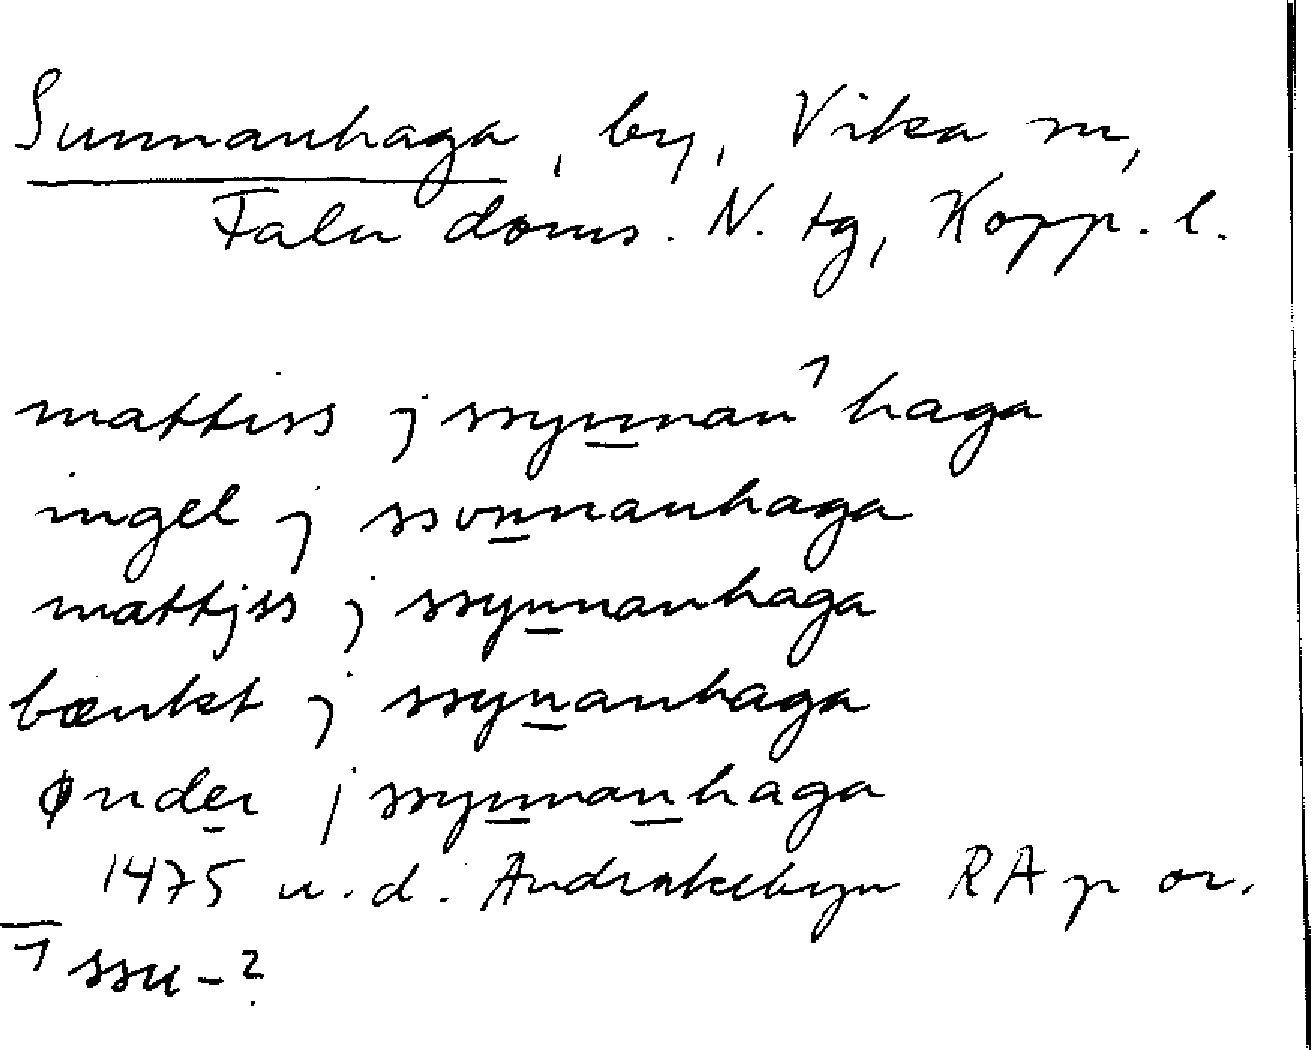 Sunnanhaga, by, Vika sn,
Falu doms. N. tg, Kopp. l.
mattiss j ssynnan¹ haga
ingel j ssvnnanhaga
mattjss j ssynnanhaga
bænkt j ssynanhaga
ønder j ssynnanhaga
1475 u.d. Andrakebyn RA p or.
¹ ssu-?